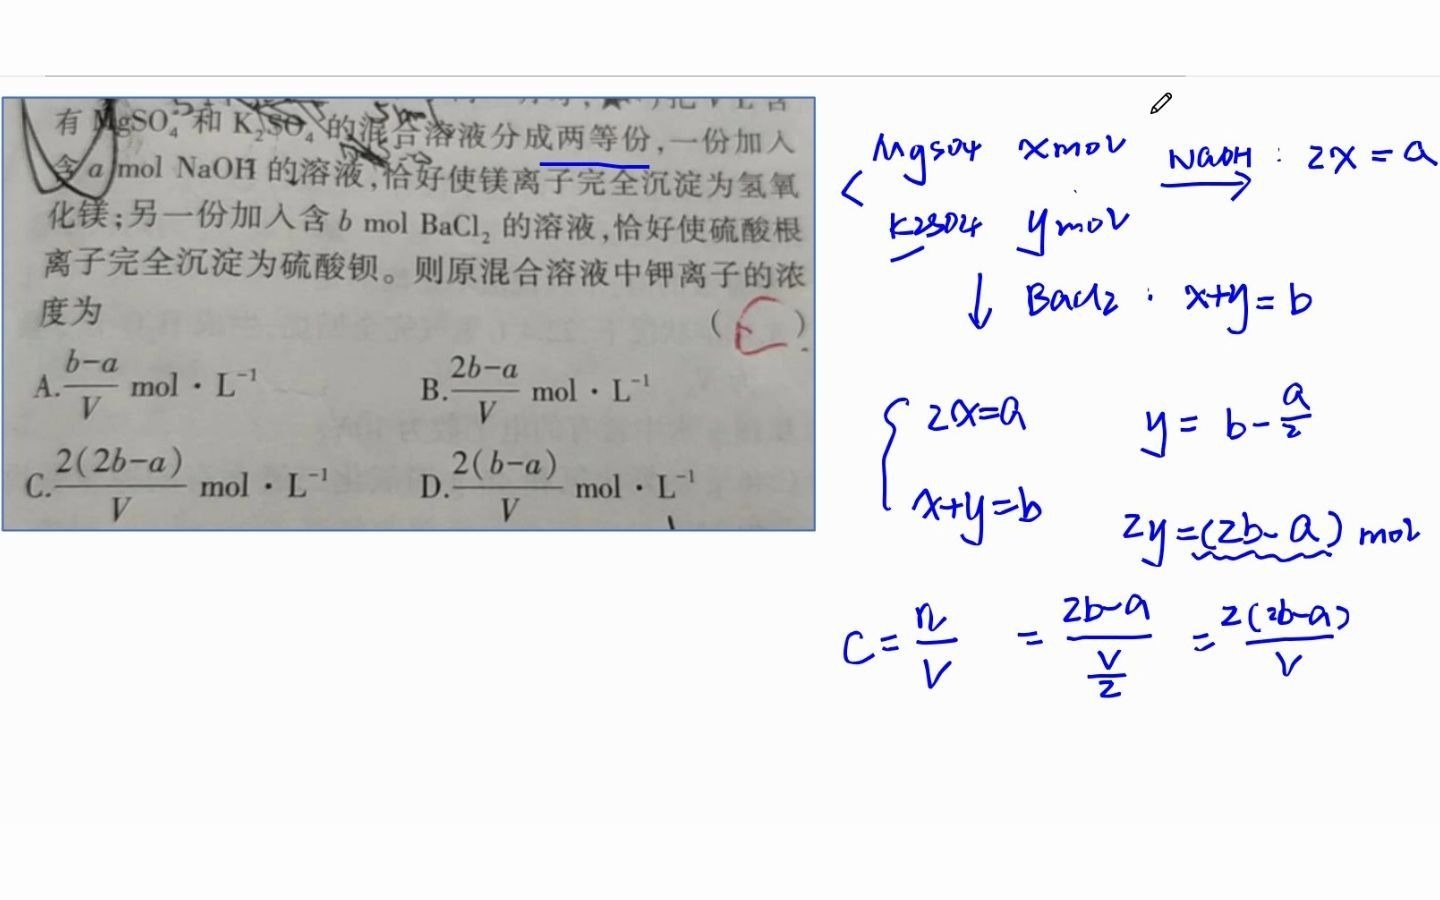 有 MgSO₄ 和 K₂SO₄ 的混合溶液分成两等份,一份加入
含 a mol NaOH 的溶液,恰好使镁离子完全沉淀为氢氧
化镁;另一份加入含 b mol BaCl₂ 的溶液,恰好使硫酸根
离子完全沉淀为硫酸钡。则原混合溶液中钾离子的浓
度为 ( C ).
A. (b-a)/V mol·L⁻¹ B. (2b-a)/V mol·L⁻¹
C. 2(2b-a)/V mol·L⁻¹ D. 2(b-a)/V mol·L⁻¹
MgSO4 xmol NaOH : 2x = a
K2SO4 ymol
↓ BaCl2 : x+y = b
{ 2x=a
x+y=b
y = b - a/2
2y=(2b-a) mol
C = n/V = (2b-a)/(V/2) = 2(2b-a)/V